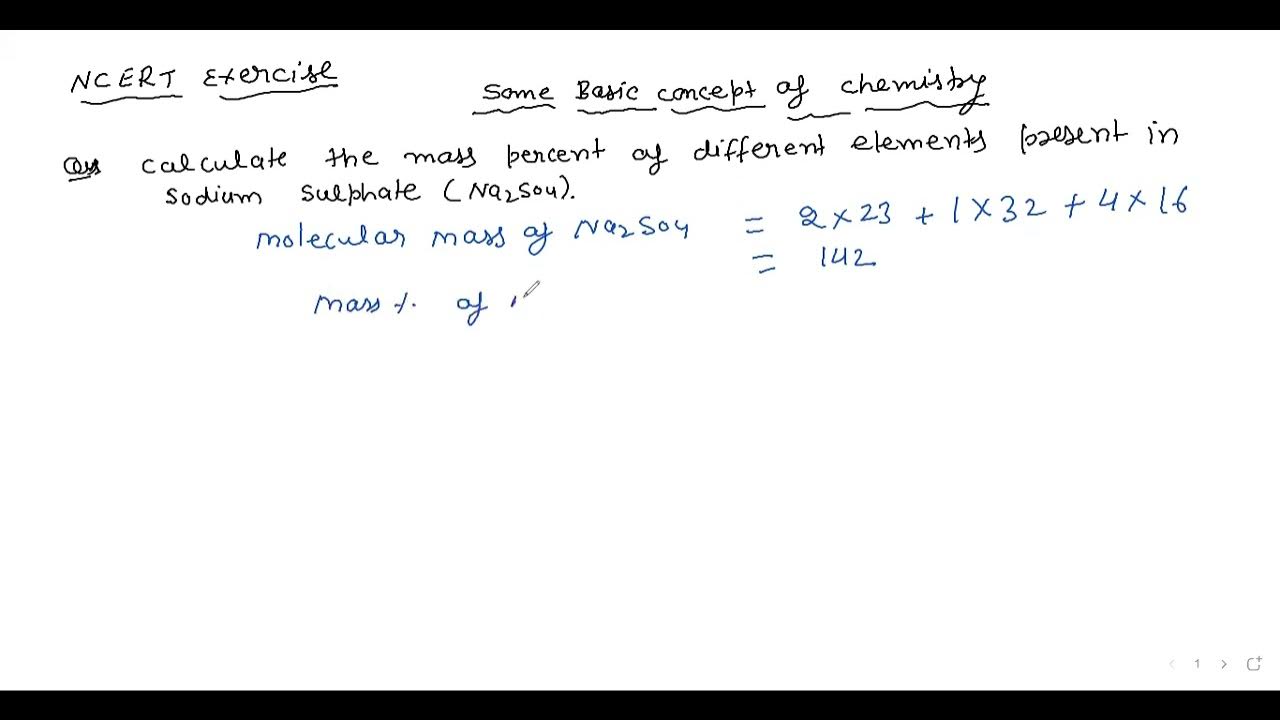 NCERT Exercise
Some Basic concept of chemistry
Ques calculate the mass percent of different elements present in
sodium sulphate (Na2SO4).
molecular mass of Na2SO4 = 2 × 23 + 1 × 32 + 4 × 16
= 142
mass % of
1